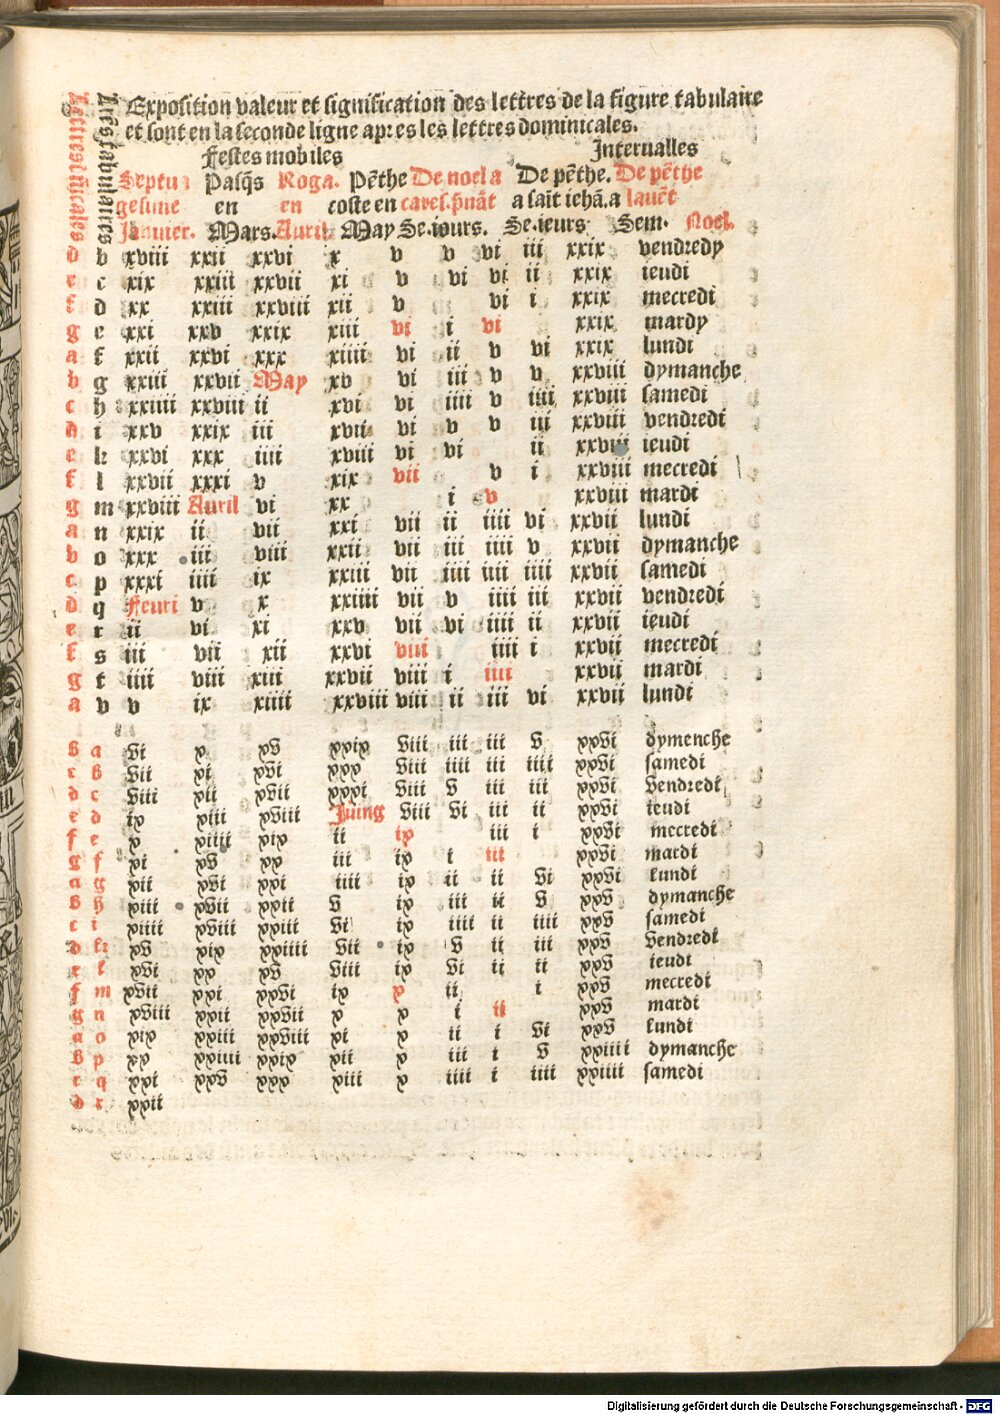 Exposition valeur et signification des lettres de la figure tabulaire
et sont en la seconde ligne apres les lettres dominicales.
Festes mobiles Internalles
Septu Pasq̃s Roga. Pẽthe De noel a De pẽthe. De pẽthe
gesime en en coste en cares.p̃nãt a sait iehã.a lauẽt
Januier. Mars. Auril May Se.iours. Se.ieurs Sem. Noel.
d b xviii xxii xxvi x v v vi iii xxix vendredy
e c xix xxiii xxvii xi v vi vi ii xxix ieudi
f d xx xxiii xxviii xii v vi i xxix mecredi
g e xxi xxv xxix xiii vi i vi xxix mardy
a f xxii xxvi xxx xiiii vi ii v vi xxix lundi
b g xxiii xxvii May xv vi iii v v xxviii dymanche
c h xxiiii xxviii ii xvi vi iiii v iiii xxviii samedi
d i xxv xxix iii xvii vi v v iii xxviii vendredi
e k xxvi xxx iiii xviii vi vi ii xxviii ieudi
f l xxvii xxxi v xix vii v i xxviii mecredi
g m xxviii Auril vi xx i v xxviii mardi
a n xxix ii vii xxi vii ii iiii vi xxvii lundi
b o xxx iii viii xxii vii iii iiii v xxvii dymanche
c p xxxi iiii ix xxiii vii iiii iiii iiii xxvii samedi
d q Feuri v x xxiiii vii v iiii iii xxvii vendredi
e r ii vi xi xxv vii vi iiii ii xxvii ieudi
f s iii vii xii xxvi viii iiii i xxvii mecredi
g t iiii viii xiii xxvii viii i iiii xxvii mardi
a v v ix xiiii xxviii viii ii iii vi xxvii lundi
b a vi x xv xxix viii iii iii v xxvi dymenche
c b vii xi xvi xxx viii iiii iii iiii xxvi samedi
d c viii xii xvii xxxi viii v iii iii xxvi vendredi
e d ix xiii xviii Juing viii vi iii ii xxvi ieudi
f e x xiiii xix ii ix iii i xxvi mecredi
g f xi xv xx iii ix i iii xxvi mardi
a g xii xvi xxi iiii ix ii ii vi xxvi lundi
b h xiii xvii xxii v ix iii ii v xxv dymanche
c i xiiii xviii xxiii vi ix iiii ii iiii xxv samedi
d k xv xix xxiiii vii ix v ii iii xxv vendredi
e l xvi xx xv viii ix vi ii ii xxv ieudi
f m xvii xxi xxvi ix x ii i xxv mecredi
g n xviii xxii xxvii x x i ii xxv mardi
a o xix xxiii xxviii xi x ii i vi xxv lundi
b p xx xxiiii xxix xii x iii i v xxiiii dymanche
c q xxi xxv xxx xiii x iiii i iiii xxiiii samedi
d r xxii
Digitalisierung gefördert durch die Deutsche Forschungsgemeinschaft - DFG